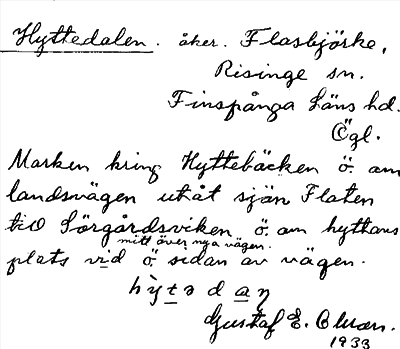 Hyttedalen. åker. Flasbjörke,
Risinge sn.
Finspånga Läns hd.
Ögl.
Marken kring Hyttebäcken ö. om
landsvägen utåt sjön Flaten
till Sörgårdsviken ö. om hyttans
mitt över nya vägen.
plats vid ö. sidan av vägen.
Gustaf E.
1933